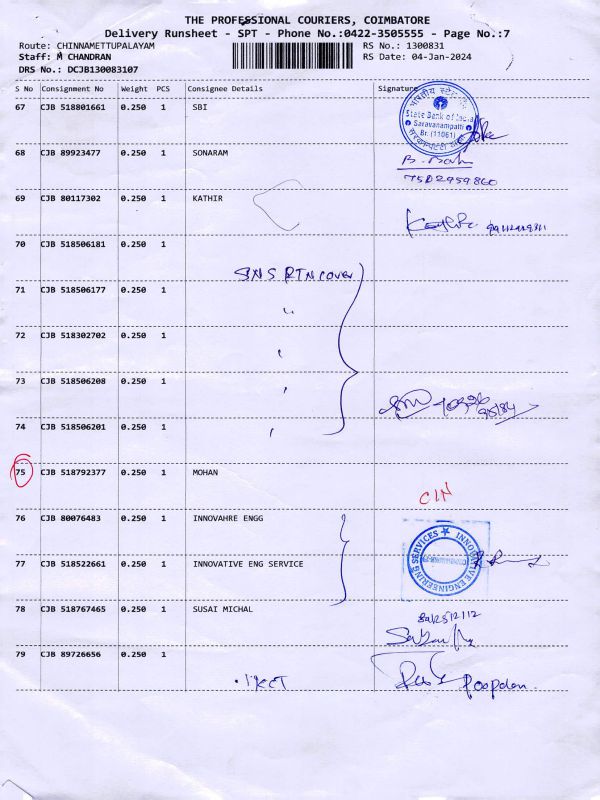 THE PROFESSIONAL COURIERS, COIMBATORE
Delivery Runsheet - SPT - Phone No.:0422-3505555 - Page No.:7
Route: CHINNAMETTUPALAYAM RS No.: 1300831
Staff: M CHANDRAN RS Date: 04-Jan-2024
DRS No.: DCJB130083107
S No Consignment No Weight PCS Consignee Details Signature
67 CJB 518801661 0.250 1 SBI
भारतीय स्टेट बैंक
State Bank of India
Saravanampatti
Br. (11061)
68 CJB 89923477 0.250 1 SONARAM
7502959860
69 CJB 80117302 0.250 1 KATHIR
70 CJB 518506181 0.250 1
SNS RTN Cover
71 CJB 518506177 0.250 1
72 CJB 518302702 0.250 1
73 CJB 518506208 0.250 1
74 CJB 518506201 0.250 1
75 CJB 518792377 0.250 1 MOHAN
CIN
76 CJB 80076483 0.250 1 INNOVAHRE ENGG
INNOVATIVE ENGINEERING SERVICES
77 CJB 518522661 0.250 1 INNOVATIVE ENG SERVICE
78 CJB 518767465 0.250 1 SUSAI MICHAL
79 CJB 89726656 0.250 1